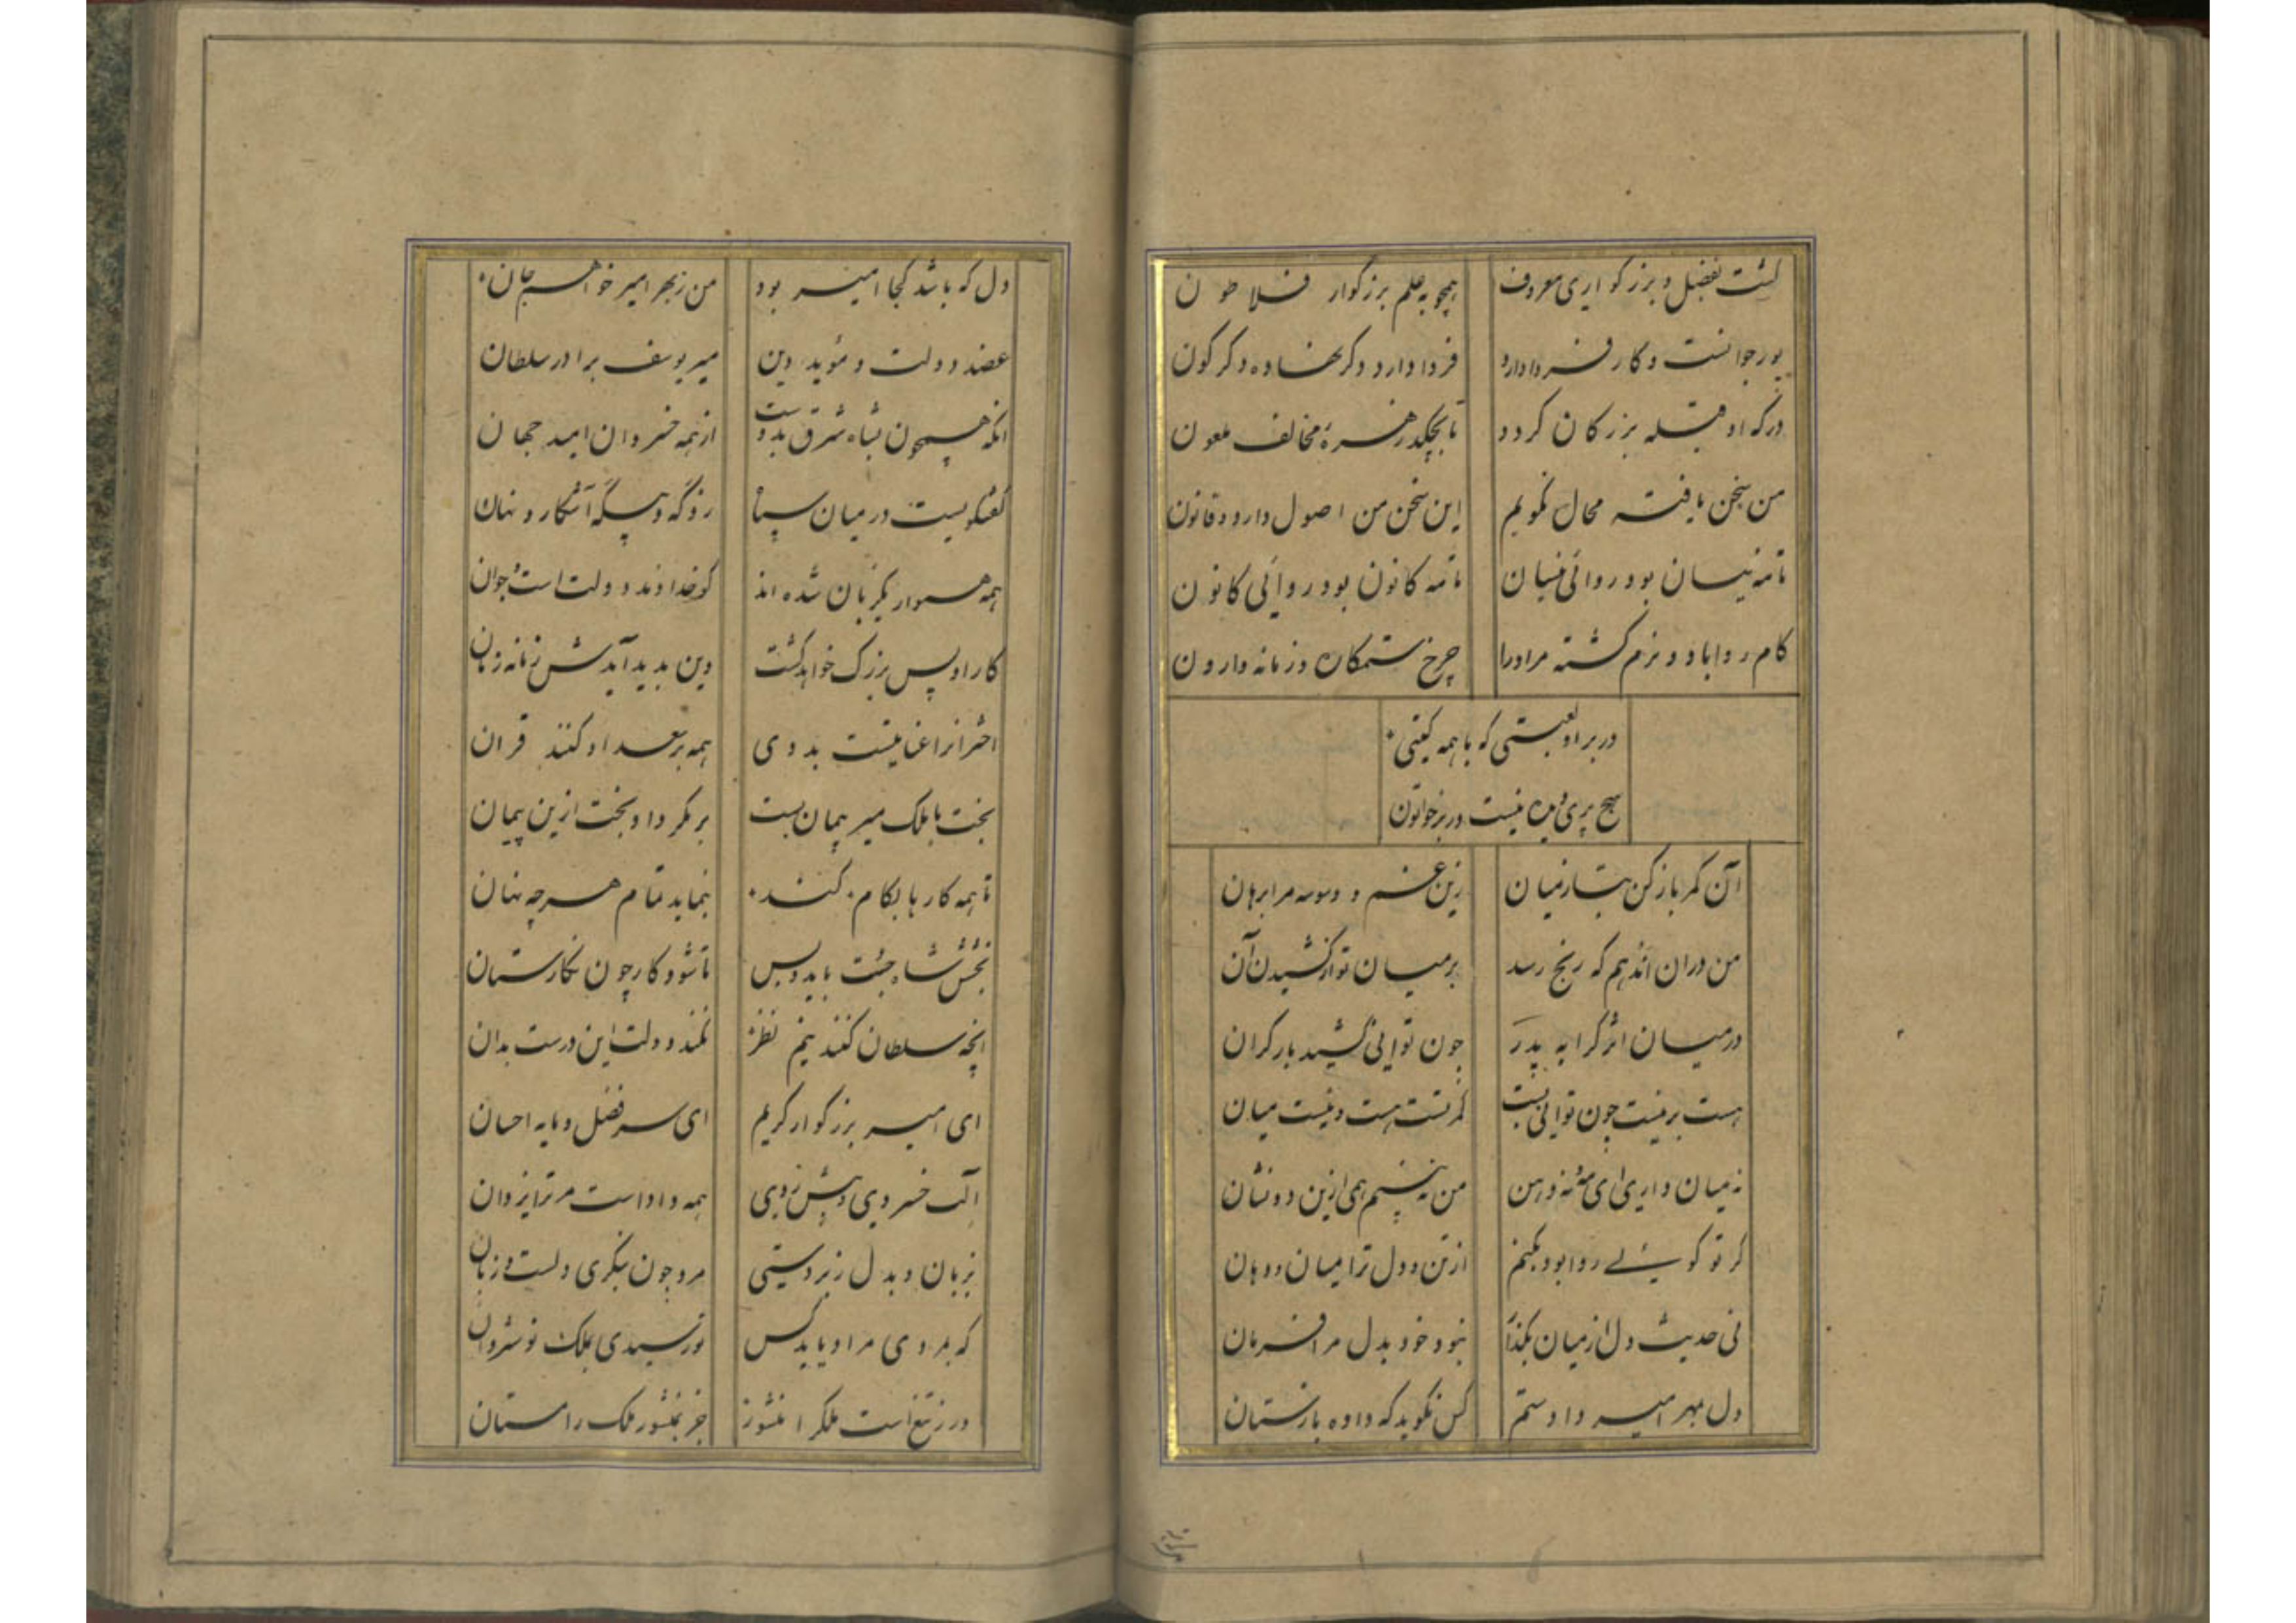 گشت بفضل و بزرکواری معروف همچو به علم بزرکوار فلاطون
پور جوانست و کار فردا دارد فردا دارد دکر نهاده دکرکون
درکه او قبله بزرکان کردد تا بچکد زهره مخالف ملعون
من سخن یافته محال نکویم این سخن من اصول دارد و قانون
تا مه نیسان بود روائی نیسان تا مه کانون بود روائی کانون
کام روا باد و نرم کشته مر او را چرخ ستمکاره و زمانه وارون
در بر او لعبتی که با همه کیتی
هیچ پری چهره نیست در بر خواتون
آن کمر باز کن بتا ز میان زین غم و وسوسه مرا برهان
من دران اندهم که رنج رسد بر میان تو از کشیدن آن
در میان اثر کرا به پدر چون توانی کشید بار کران
هست بر نیست چون توانی بست کمرتست هست و نیست میان
نه میان داری ای مه نه دهن من نبینم همی ازین دو نشان
کر تو کوئی روا بود بکنم از تن و دل ترا میان و دهان
نی حدیث دل از میان بکذار نبود خود بدل مرا فرمان
دل بمهر امیر دادستم کس نکوید که داده بازستان
دل که باشد کجا امیر بود من ز بهر امیر خواهم جان
عضد دولت و مؤید دین میر یوسف برادر سلطان
آنکه همچون بشاه شرق بدوست از همه خسروان امید جهان
کفتکویست در میان سپاه روز که و بیکه آشکار و نهان
همه هموار یکزبان شده اند کو خداوند دولت است و جوان
کار او پس بزرک خواهد کشت وین بدید آیدش زمانه زمان
اختران را عنایتست بدوی همه بر سعد او کنند قران
بخت با ملک میر پیمان بست بر نکردد بخت ازین پیمان
تا همه کارها بکام کند بنماید تمام هر چه نهان
بخشش شاه جست باید و بس تا شود کار چون نکارستان
آنچه سلطان کند بنیم نظر نکند دولت این درست بدان
ای امیر بزرکوار کریم ای سر فضل و مایه احسان
آلت خسروی و پیش روی همه داداست مر ترا یزدان
بزبان و بدل زبردستی مرد چون بنکری دلست و زبان
که بمردی مراد یابد کس تو رسیدی بملک نوشروان
ور ز تیغ است ملک را منشور جز بمنشور ملک را مستان